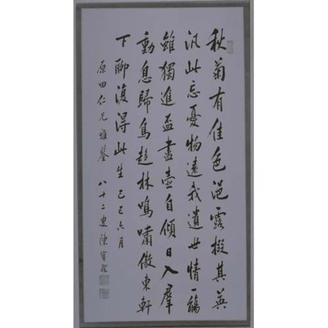 秋菊有佳色浥露掇其英
汎此忘憂物遠我遺世情一觴
雖獨進盃盡壺自傾日入羣
動息歸鳥趨林鳴嘯傲東軒
下聊復得此生己巳六月
原田仁兄雅鑒 八十二叟陳寶琛